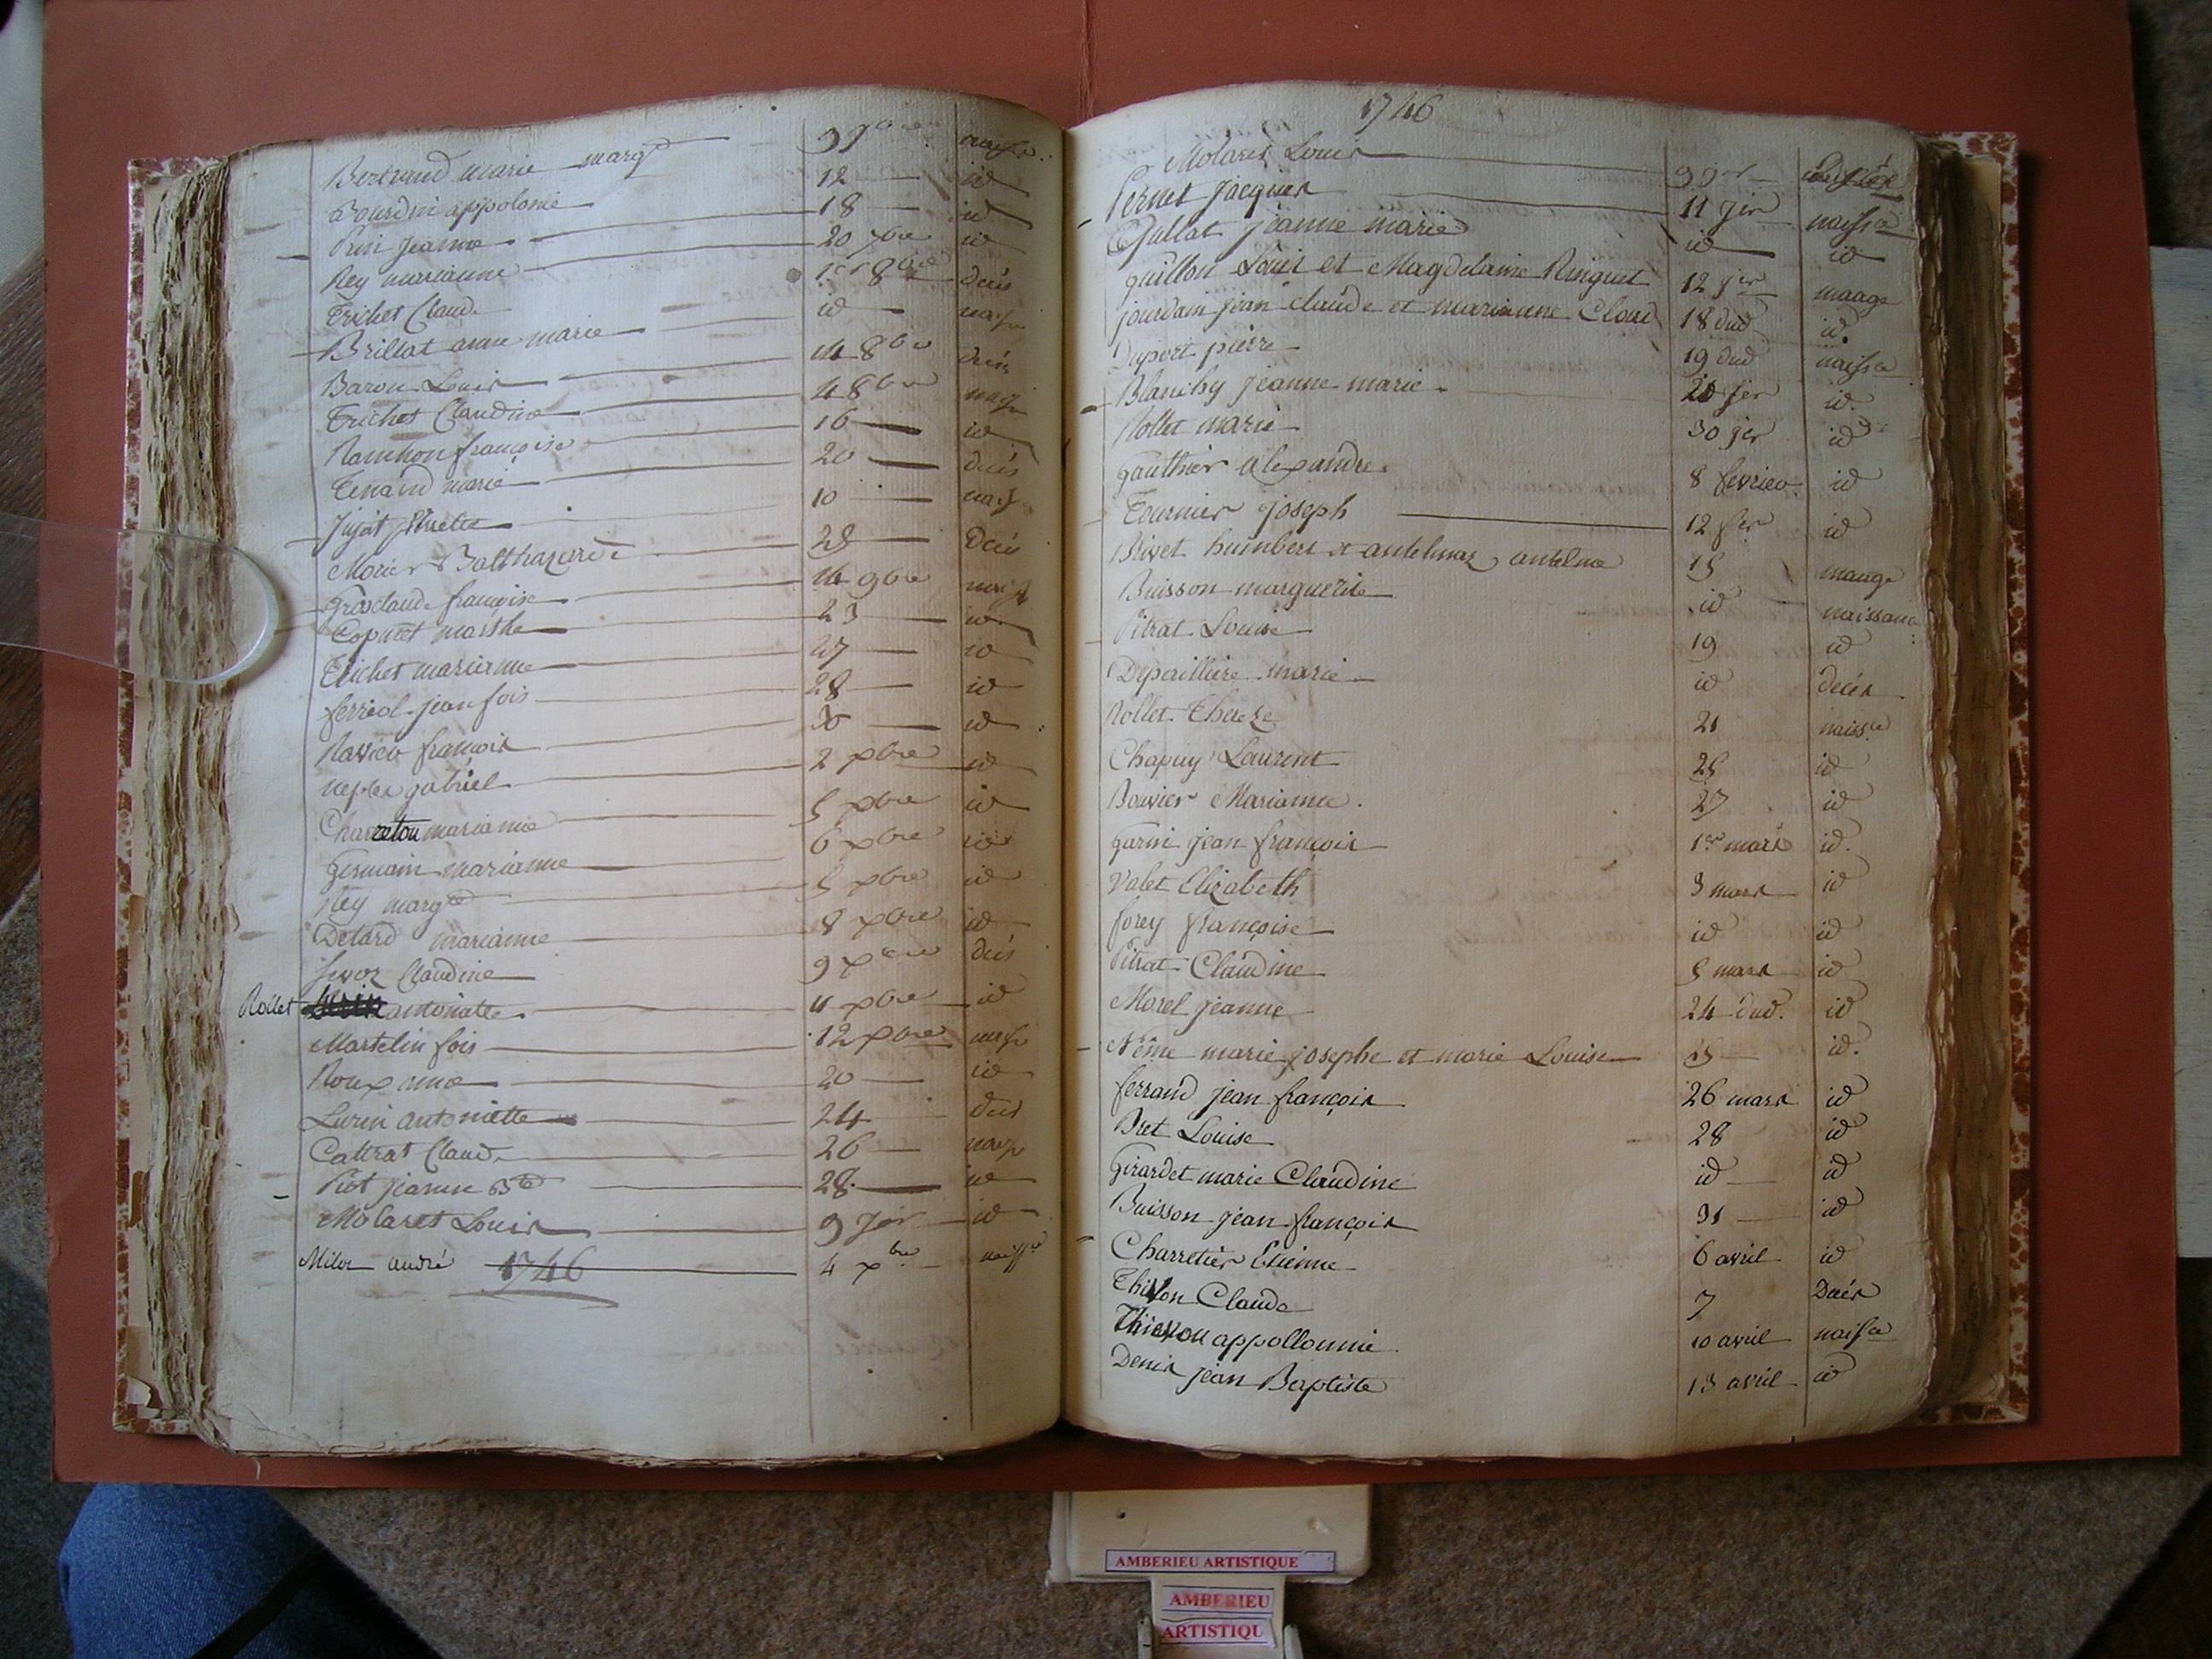 Bertrand marie margte 9 7bre naiss.
Bourdin appolonie 12 id
Prin jeanne 18 id
Rey marianne 20 7bre id
Trichet Claude 1er 8bre decis
Brillat anne marie id naiss
Baron Louis 14 8bre decis
Trichet Claudine 4 8bre naiss
Ramihon françoise 16 id
Tenand marie 20 decis
Jujat 10 naiss
Morier Balthazarde 28 Decis
Grosclaude françoise 14 9bre naiss
Copinet marthe 23 id
Trichet marianne 27 id
ferriol jean fois 28 id
Ravier françois 30 id
gabriel 2 xbre id
Charreton marianne 5 xbre id
Germain marianne 6 xbre id
Rey margte 5 xbre id
Detard marianne 8 xbre id
Claudine 9 xbre decis
Rollet antoinette 11 xbre id
Martelin fois 12 xbre naiss
Roux anne 20 id
Lurin antoniette 24 decis
Cattrat Claude 26 naiss
Piot jeanne Bte 28 id
Molaret Louis 9 jer id
Milon andré 4 xbre naissce
1746
1746
Molaret Louis 9 jer
Pernet jacques 11 jer naissce
Gullat jeanne marie id id
guillon Louis et Magdelaine Ringuet 12 jer maage
jourdain jean claude et marianne Cloud 18 dud id.
Duport pierre 19 dud naissce
Blanchy jeanne marie 20 jer id.
Rollet marie 30 jer id
Gauthier alexandre 8 fevrier id
Tournier joseph 12 fer id
Brivet humbert et antelmaz antelme 15 maage
Buisson marguerite id naissance
Pitrat Louise 19 id
Depailliere marie id decés
Rollet Thereze 21 naissce
Chapuy Laurent 25 id
Bouvier Marianne. 27 id
Garin jean françois 1er mars id.
Valet Elizabeth 3 mars id
forey françoise id id
Pitrat Claudine 5 mars id
Morel jeanne 24 dud. id
Nême marie josephe et marie Louise 25 id.
ferrand jean françois 26 mars id
Bret Louise 28 id
Girardet marie Claudine id id
Buisson jean françois 31 id
Charretier Etienne 6 avril id
Thivon Claude 7 Decés
Thievon appollonnie 10 avril naissce
Denis jean Baptiste 13 avril id
AMBERIEU ARTISTIQUE
AMBERIEU
ARTISTIQU